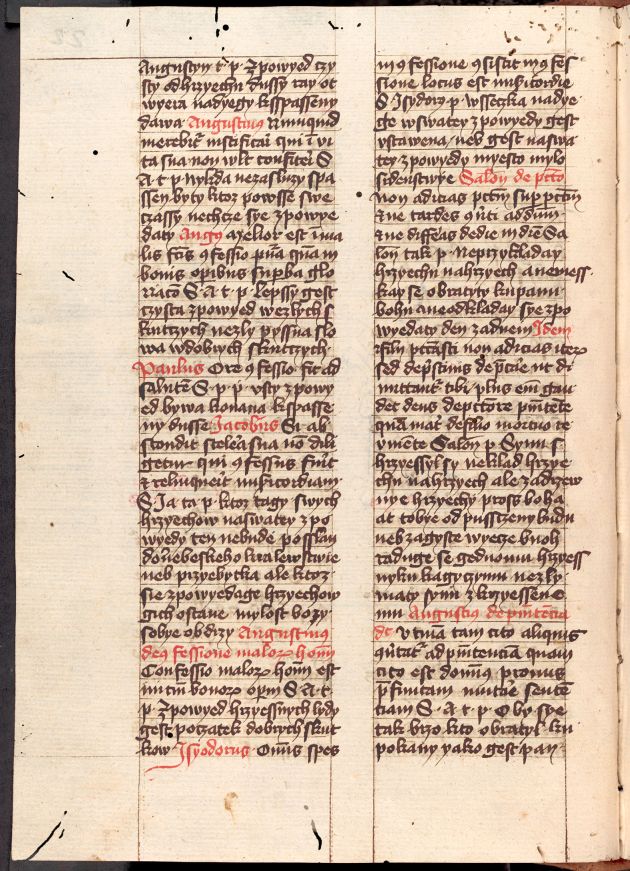 Augustyn t · p · zpowyed czy
sty od hrzyechuow dussy ray ot
wyera nadyegy kspasseny
dawa Augustinus Nunquid
merebitur iustificari qui in vi
ta sua non wlt confiteri S
A · t · p Nykda nezasluzy spa
ssen byty ktoz powsse swe
czassy nechcze sye zpowye
daty Augus Melior est in ma
lis factis confessio pura quam in
bonis opibus supba glo
riaco S · A · t · p · lepssy gest
czysta zpowyed we zlych s
kutczych nezly pyssna slo
wa w dobrych skutczych
Paulus Ore confessio fit ad
salutem S · p · p · vsty zpowy
ed bywa konana kspasse
ny dusse Jacobus Si ab
scondit scelera sua non dili
getur qui confessus fuerit
et relinquerit misericordiam
S · Ja ta · p · ktoz tagy swych
hrzyechow na swatey zpo
wyedy ten nebude posslan
do nebeskeho kralewstwie
neb przyebytka ale ktoz
sie zpowyedage hrzyechow
gich ostane mylost bozy
sobye obdrzy Augustinus
de confessione malorum hominum
Confessio malorum hominum est
initium bonorum operum S · A · t ·
p · zpowyed hrzyessnych lydy
gest poczatek dobrych skut
kow · Isyodorus · Omnis spes
in confessione consistit in confes
sione locus est misericordie
S Isydorz p · wsseczka nadye
ge w swatey zpowyedy gest
vstawena / neb gest na swa
tey zpowyedy myesto mylo
sidenstwye Salon de peccato
non adicias peccatum super peccatum
et ne tardes conuerti ad dominum
et ne differas de die in diem Sa
lon tak p · Neprzykladay
hrzyechu na hrzyech a nemess
kay se obratyty ku panu
bohu ane odkladay sye zpo
wyedaty den za dnem Idem
fili peccasti non adicias iterum
sed de pristinis deprecare ut di
mittantur tibi · plus enim gau
det deus de peccatore penitente
quam mater de filio mortuo re
uiuente Salon p Synu s
hrzyessylsy neklad hrzye
chu na hrzyech ale za drzew
nye hrzyechy pross boha
at tobye odpusstzeny budu
neb zagyste wyecze buoh
raduge se gednomu hrzyess
nyku kagyczymu nezly
maty synu z krzyessene
mu Augustinus de peniten
cia dt Vtinam tam cito aliquis
conuertatur ad penitentiam quam
cito est dominus pronus
prefinitam mutare senten
tiam S · A · t · p O by sye
tak brzo kto obratyl ku
pokany yako gest pan ·